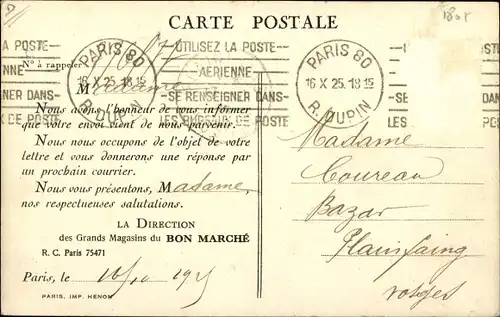 CARTE POSTALE
A LA POSTE
UTILISEZ LA POSTE
AERIENNE
AERIENNE
SE RENSEIGNER DANS
LES BUREAUX DE POSTE
PARIS 80
16 X 25. 18 15
R. DUPIN
PARIS 80
16 X 25. 18 15
R. DUPIN
N° à rappeler
Madame
Nous avons l'honneur de vous informer
que votre envoi vient de nous parvenir.
Nous nous occupons de l'objet de votre
lettre et vous donnerons une réponse par
un prochain courrier.
Nous vous présentons, Madame,
nos respectueuses salutations.
LA DIRECTION
des Grands Magasins du BON MARCHÉ
R. C. Paris 75471
Paris, le 16/10 1925
PARIS, IMP. HENON
Madame
Coureau
Bazar
Plainfaing
Vosges